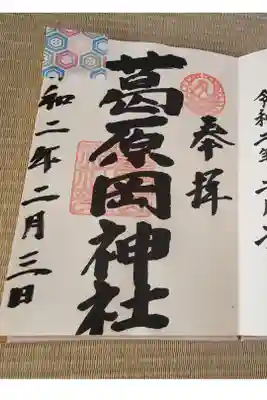 奉拝
葛原岡神社
和二年二月三日
令和二年二月